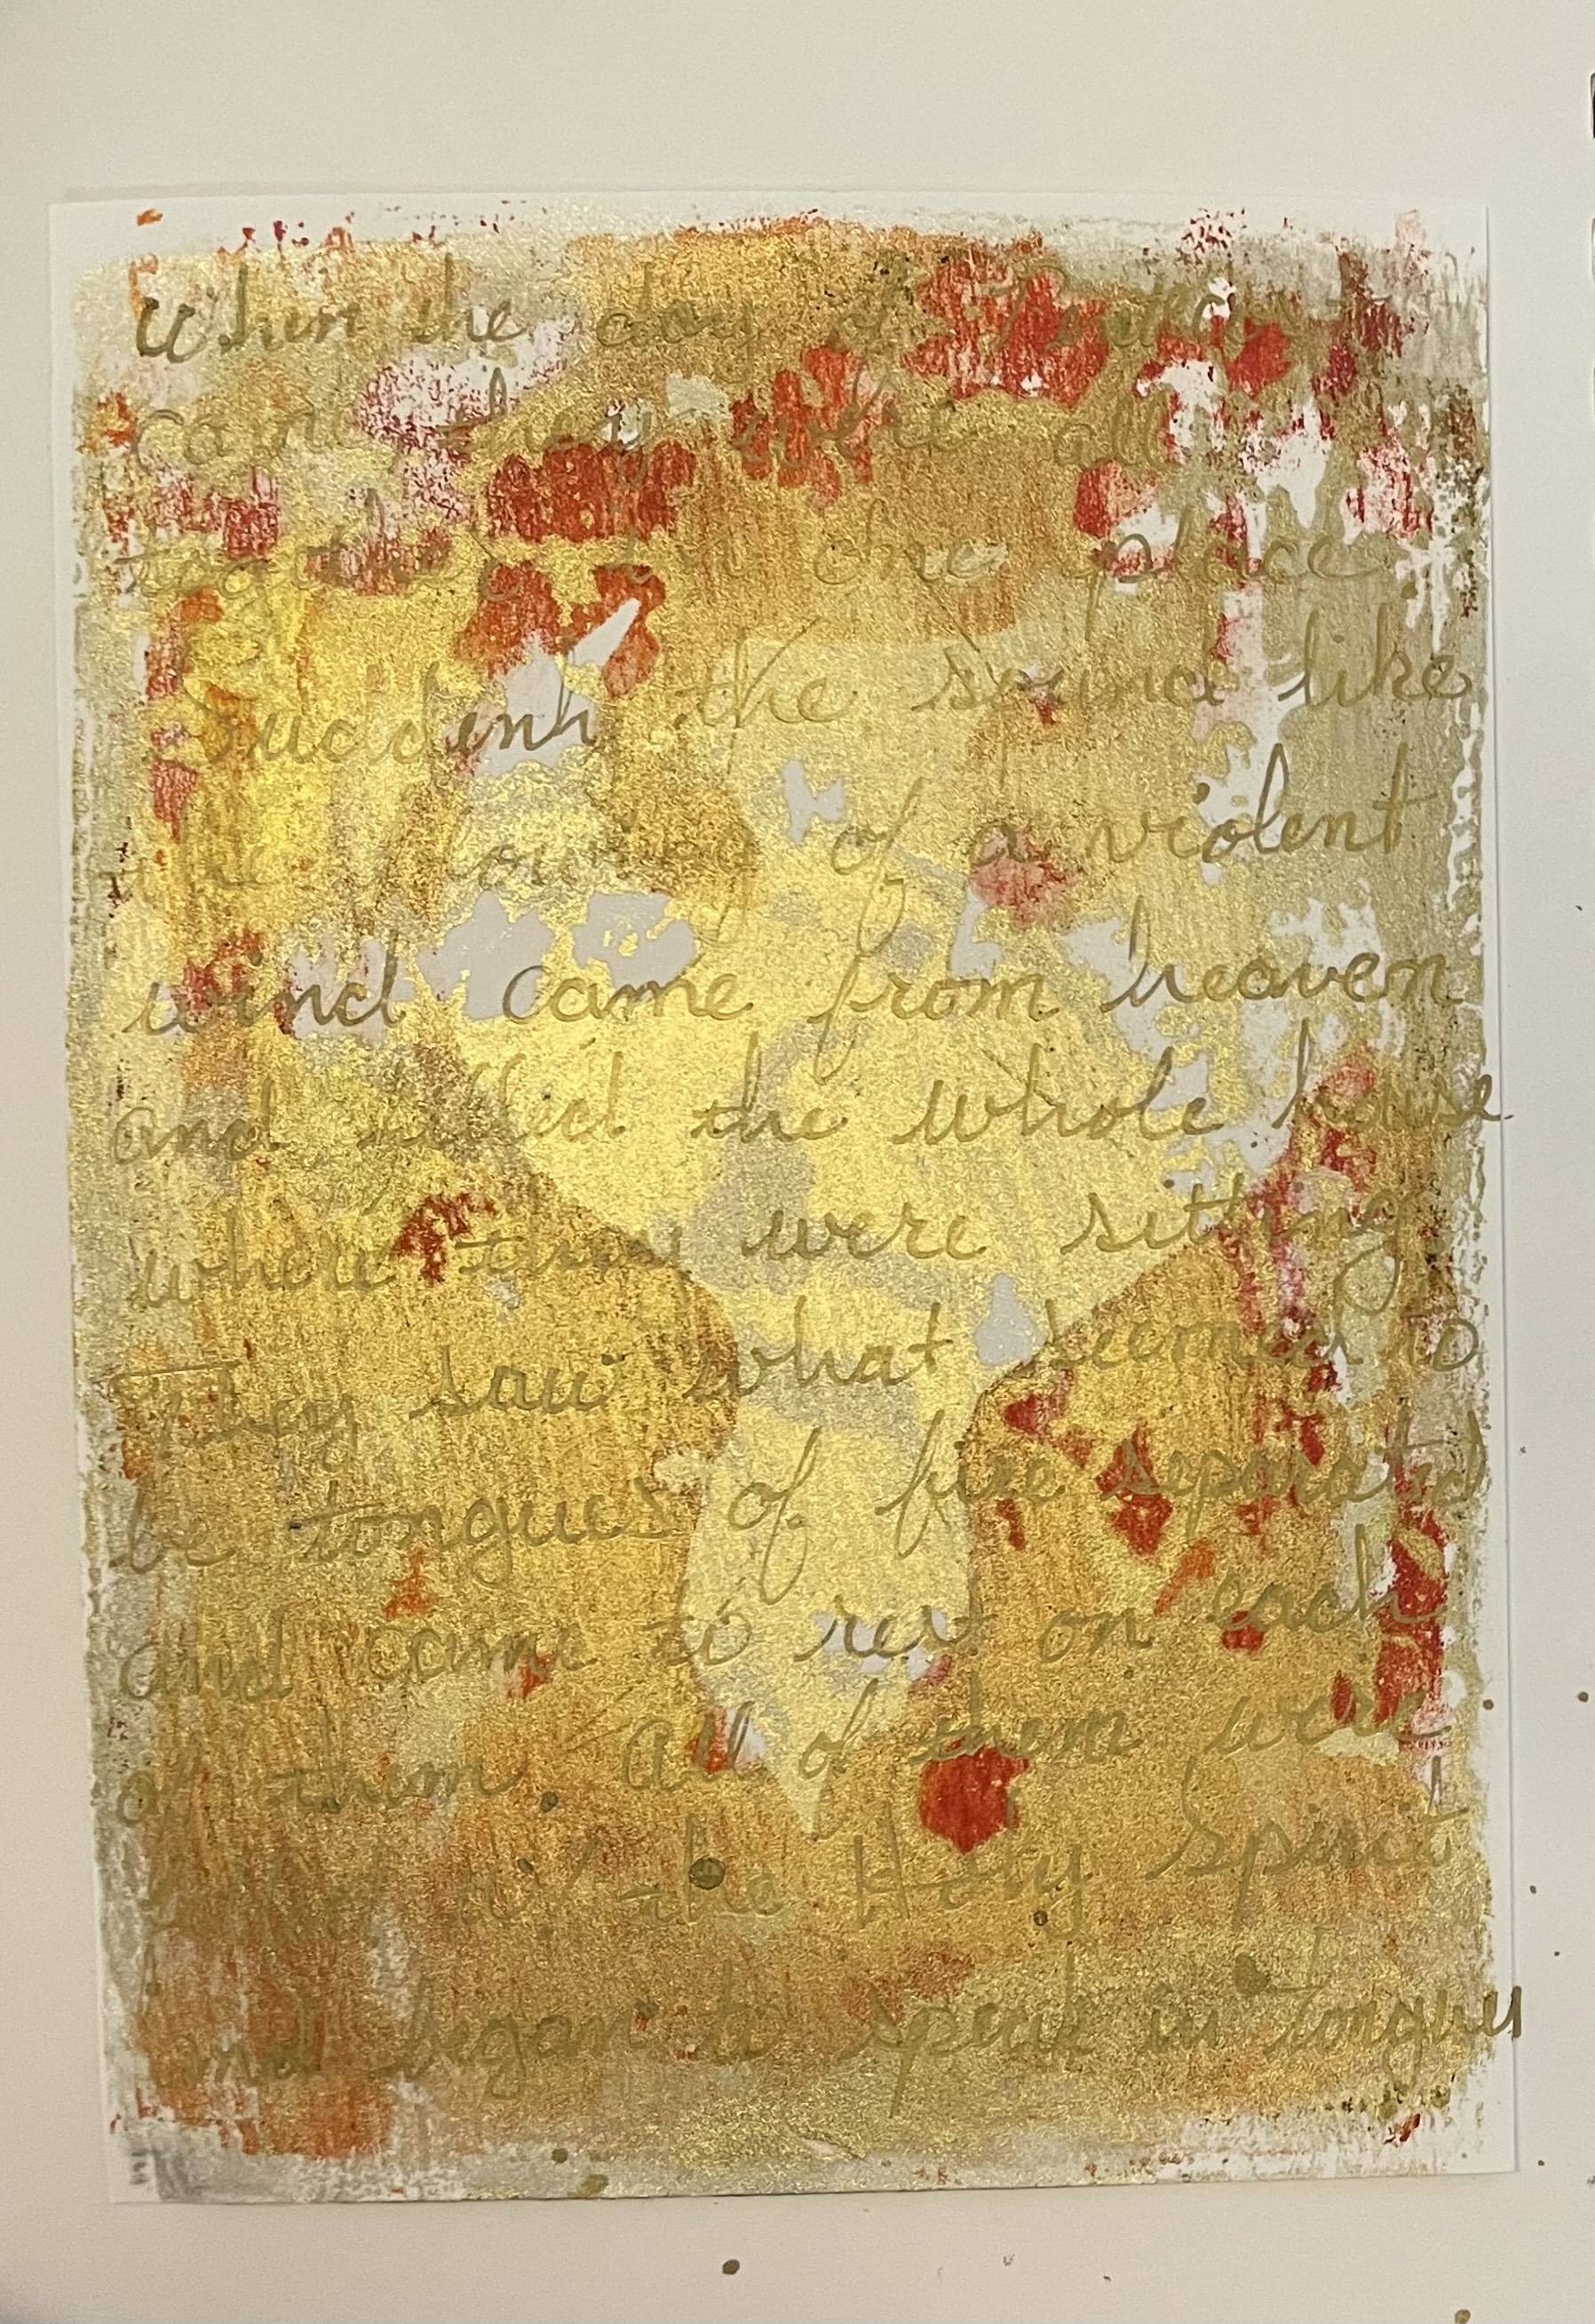 When the day of Pentecost
came, they were all
together in one place.
Suddenly the sound like
the of a violent
wind came from heaven
and filled the whole house
where they were sitting
They saw what seemed to
be tongues of fire seperated
and came to rest on each
of them. All of them were
the Holy Spirit
and began to speak in tongues